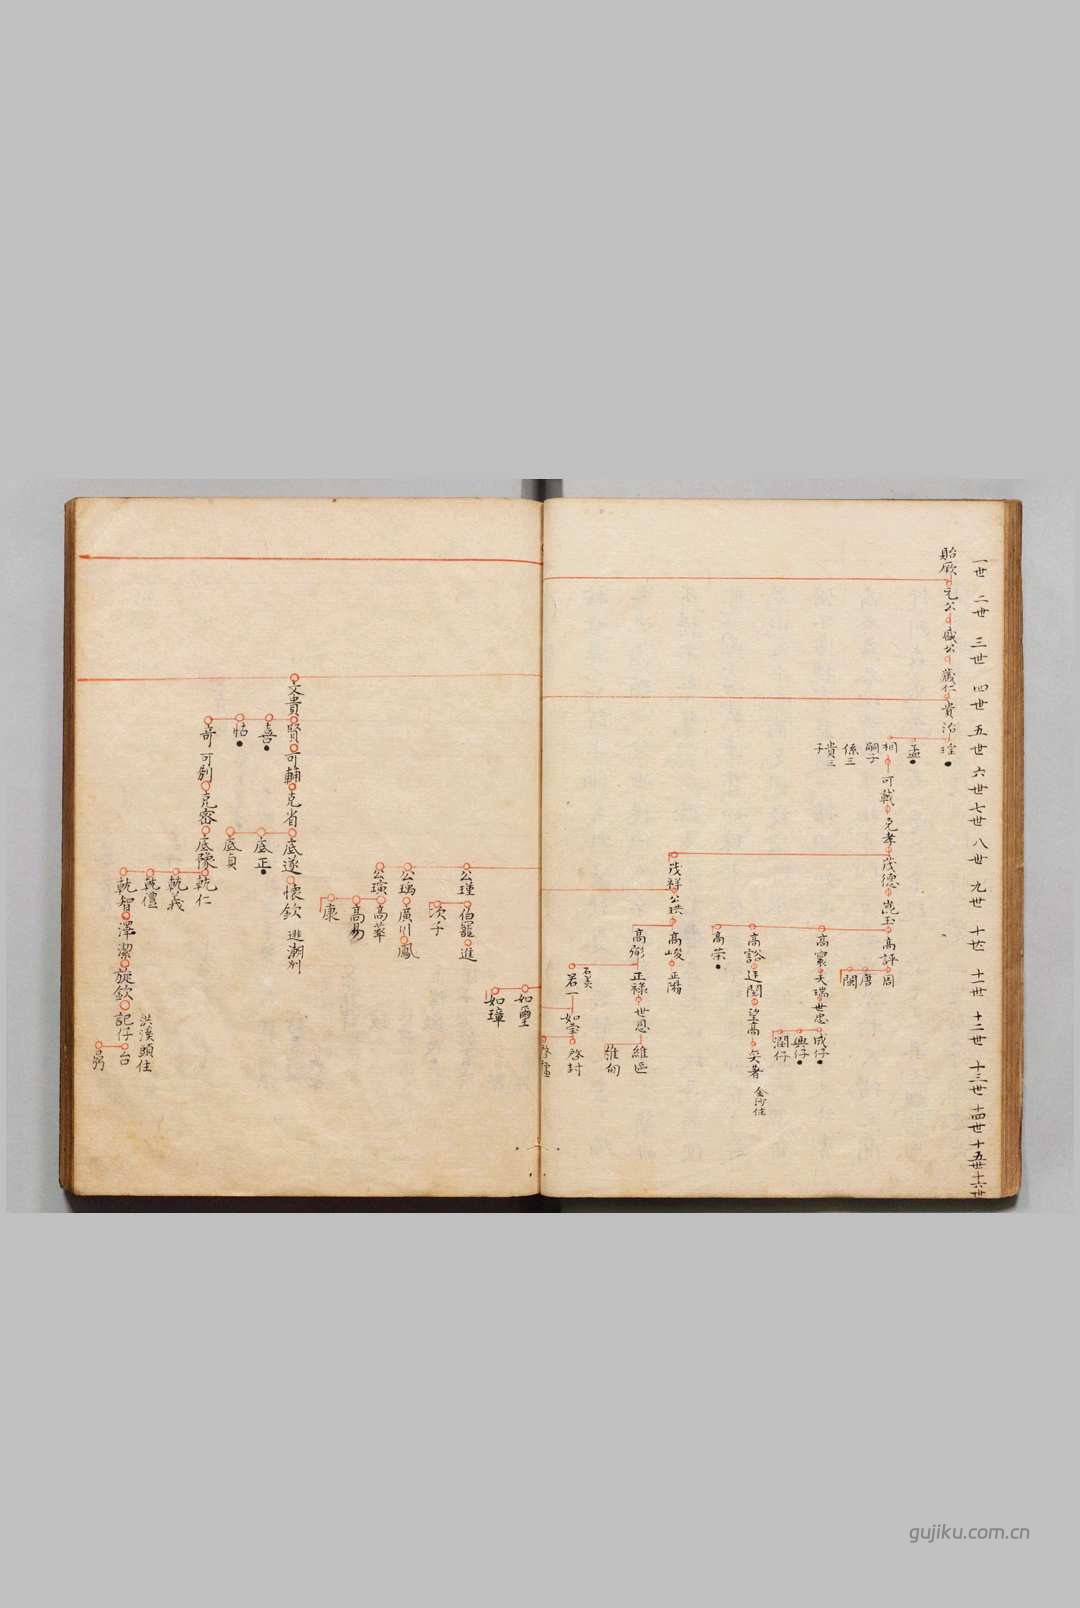 一世
二世
三世
四世
五世
六世
七世
八世
九世
十世
十一世
十二世
十三世
十四世
十五世
十六世
貽厥
元公
盛公
藏仁
貴治
瑝
孟
相
嗣子
係三
貴三子
可戟
克孝
茂德
崑玉
高評
周
唐
闕
高寰
天瑞
世忠
成仔
興仔
潤仔
高谿
廷閏
望高
奂著
金沙住
高榮
茂祥
公珙
高峻
正陽
高弼
正祿
世恩
維臣
維甸
石美
君一
如瑩
啓封
如璽
如璋
公瑾
伯寵
進
次子
公瑀
廣川
鳳
公璜
高華
高易
康
文貴
賢
可輔
克省
底遂
懷欽
逃潮州
底正
底貞
喜
怙
奇
可制
克密
底豫
乾仁
乾義
乾禮
乾智
澤潔
旋欽
記仔
洪溪頭住
台
弼
gujiku.com.cn